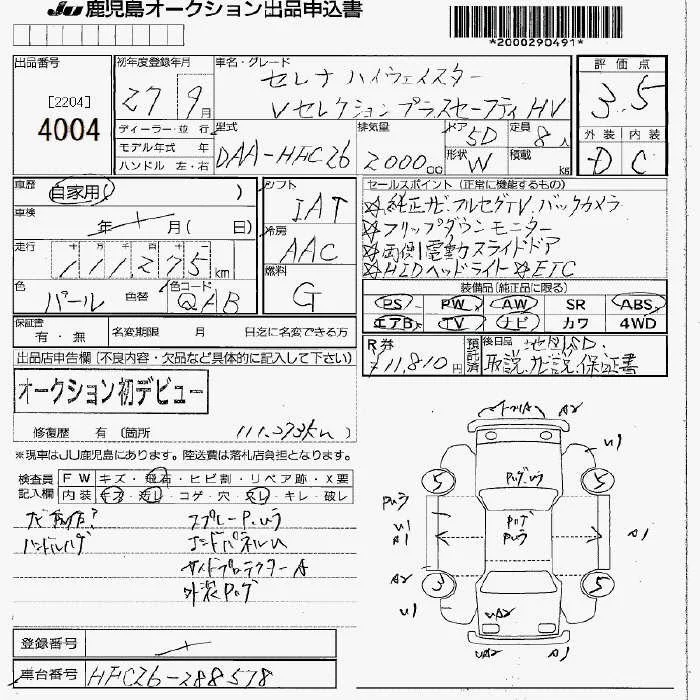 JU 鹿児島オークション出品申込書
*2000290491*
出品番号
[2204]
4004
初年度登録年月
27 9月
ディーラー・並行
モデル年式 年
ハンドル 左・右
車名・グレード
セレナ ハイウェイスター
Vセレクション プラスセーフティ HV
型式
DAA-HFC26
排気量
2000cc
ドア
5D
定員
8人
形状
W
積載
kg
評価点
3.5
外装 内装
D C
車歴
自家用( )
車検
年 月( 日)
走行
十 万 千 百 十
111275km
色
パール
色替
色コード
QAB
シフト
IAT
冷房
AAC
燃料
G
セールスポイント (正常に機能するもの)
☆純正ナビ フルセグTV.バックカメラ
☆フリップダウンモニター
☆両側電動スライドドア
☆HIDヘッドライト☆ETC
装備品(純正品に限る)
PS PW AW SR ABS
エアB TV ナビ カワ 4WD
保証書
有・無
名変期限 月 日迄に名変できる方
R券
¥11,810円
預託済
後日品
地図SD.
取説.ナビ説.保証書
出品店申告欄 (不良内容・欠品など具体的に記入して下さい)
オークション初デビュー
修復歴 有 (箇所
※現車はJU鹿児島にあります。陸送費は落札店負担となります。
検査員
記入欄
FW キズ・飛石・ヒビ割・リペア跡・X要
内装 キズ・汚レ・コゲ・穴・スレ・キレ・破レ
ハンドルハゲ
サイドプロテクターA
A2
U1
5
5
U1
A1
A1
A2
3
5
U1
UA2
A2
A1
登録番号
車台番号
HFC26-288578